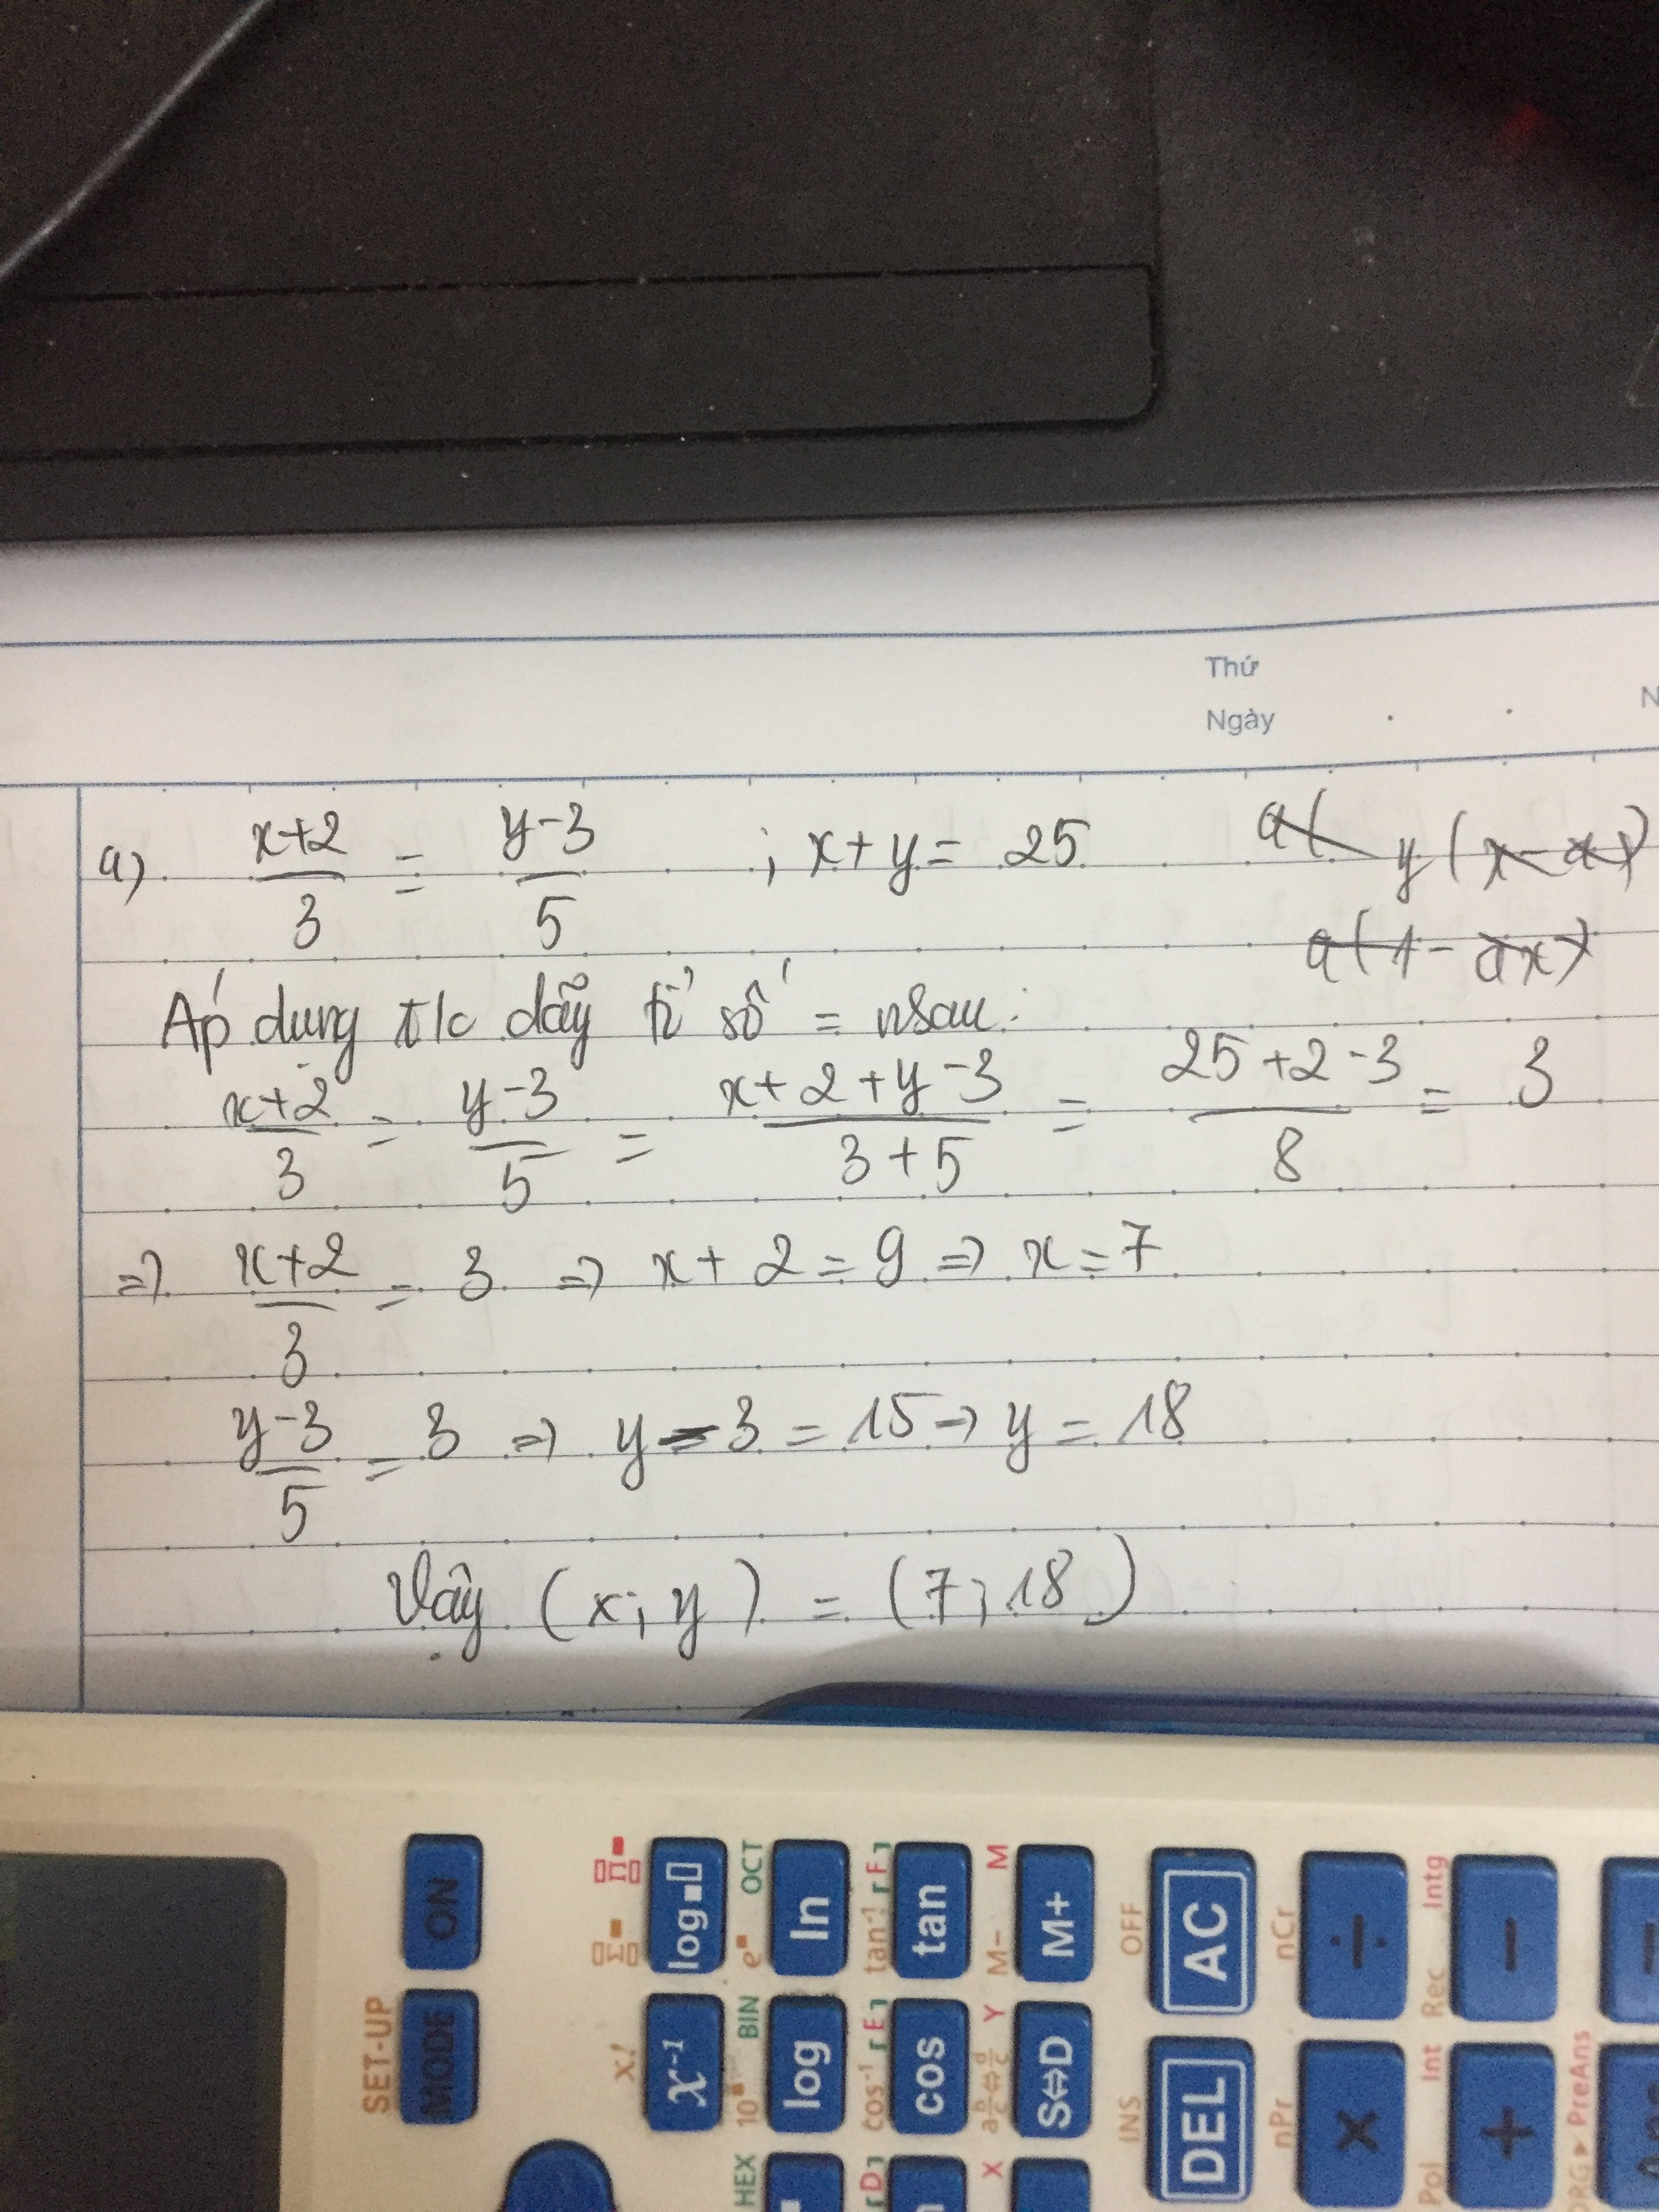 Thứ
Ngày
a) x+2/3 = y-3/5 ; x+y = 25
a( y(x-ax)
a(1-ax)
Áp dụng t/c dãy tỉ số = nhau:
x+2/3 = y-3/5 = x+2+y-3/3+5 = 25+2-3/8 = 3
=> x+2/3 = 3 => x+2=9 => x=7
y-3/5 = 3 => y-3=15 => y=18
Vậy (x;y) = (7;18)
SET-UP
MODE ON
x! Σ Π
x⁻¹ log
HEX 10 BIN e OCT
log ln
[D] cos⁻¹ [E] tan⁻¹ [F]
cos tan
X Y M- M
S⇔D M+
INS OFF
DEL AC
nPr nCr
× ÷
Pol Int Rec Intg
+ -
PreAns
Ans =